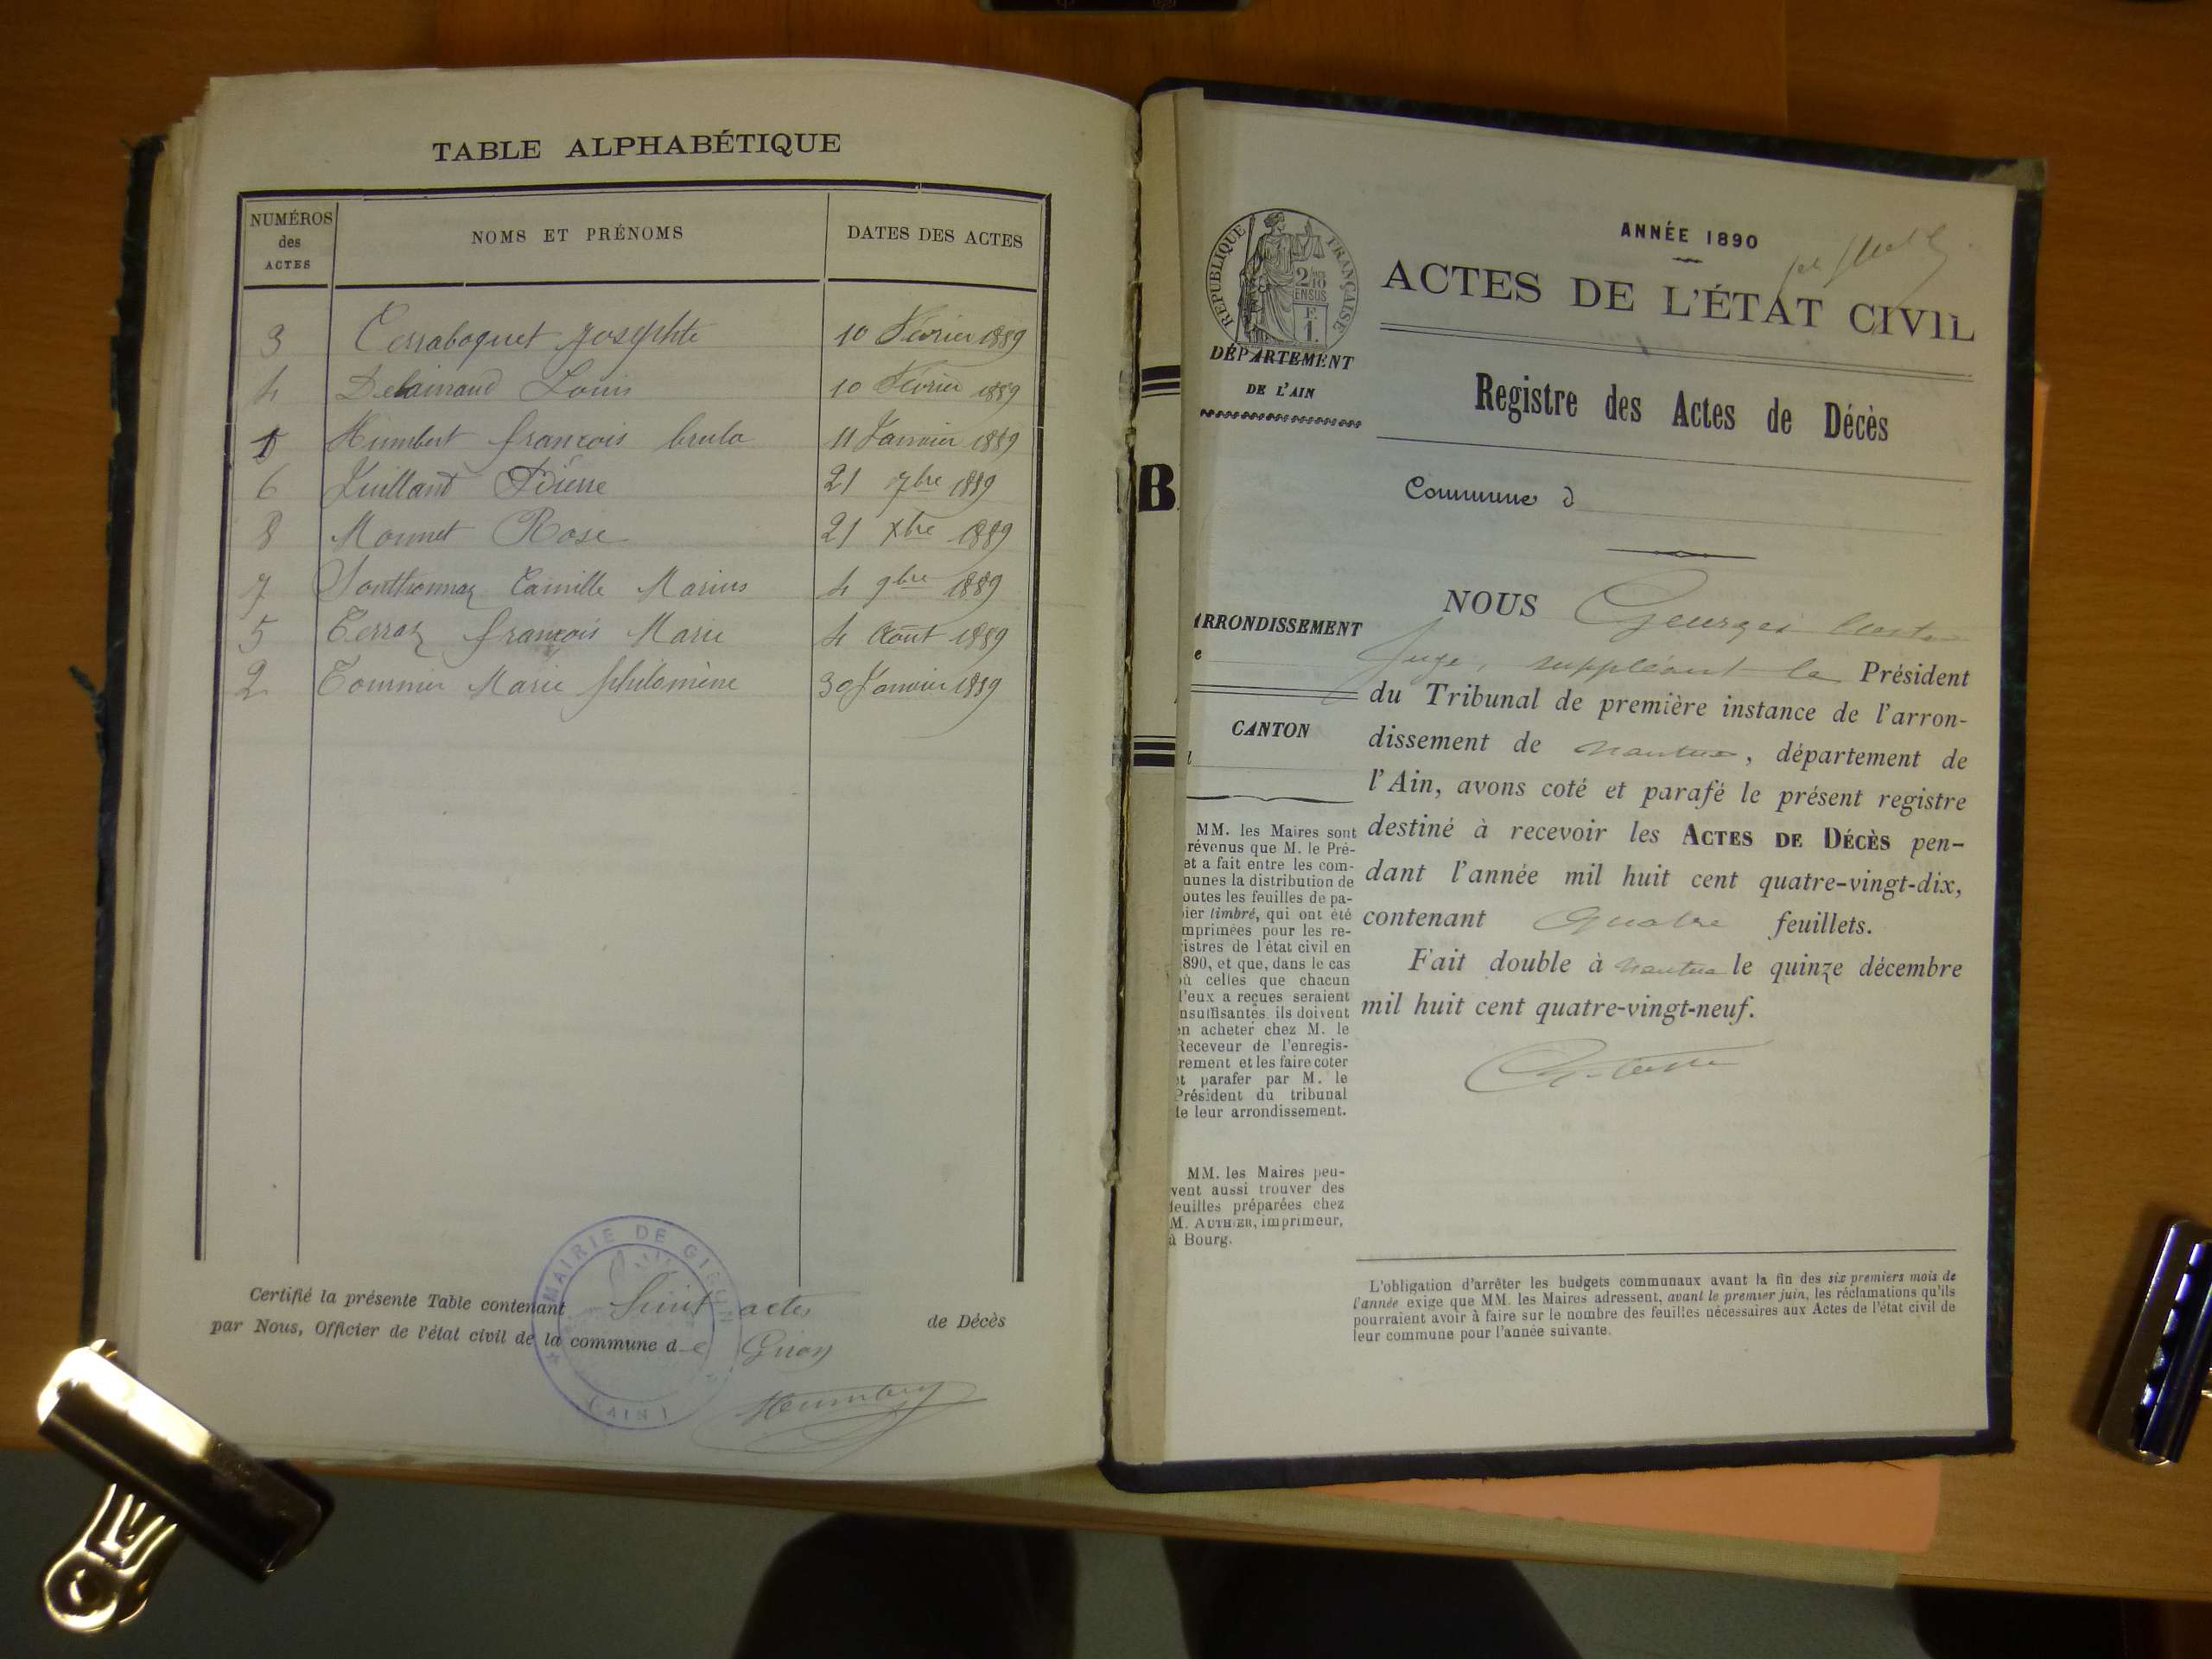 TABLE ALPHABÉTIQUE
NUMÉROS des ACTES
NOMS ET PRÉNOMS
DATES DES ACTES
3 Josephte 10 Février 1889
4 Delainaud Louis 10 Février 1889
1 Humbert françois 11 Janvier 1889
6 Juilland Pierre 21 7bre 1889
8 Monnet Rose 21 xbre 1889
7 Southonnaz Camille Marius 4 9bre 1889
5 Terraz françois Marie 4 Aout 1889
2 Tournier Marie philomène 30 Janvier 1889
Certifié la présente Table contenant huit actes de Décès
par Nous, Officier de l'état civil de la commune de Giron
MAIRIE DE GIRON
(AIN)
B
RÉPUBLIQUE FRANÇAISE
2/10 EN SUS
F. 1.
DÉPARTEMENT
DE L'AIN
ARRONDISSEMENT
e
CANTON
MM. les Maires sont
révenus que M. le Pré-
et a fait entre les com-
nunes la distribution de
outes les feuilles de pa-
ier timbré, qui ont été
mprimées pour les re-
istres de l'état civil en
890, et que, dans le cas
ù celles que chacun
l'eux a reçues seraient
nsuffisantes, ils doivent
n acheter chez M. le
Receveur de l'enregis-
rement et les faire coter
t parafer par M. le
Président du tribunal
le leur arrondissement.
MM. les Maires peu-
vent aussi trouver des
feuilles préparées chez
M. AUTHIER, imprimeur,
à Bourg.
ANNÉE 1890
ACTES DE L'ÉTAT CIVIL
Registre des Actes de Décès
Commune d
NOUS Georges
Juge, suppléant le Président
du Tribunal de première instance de l'arron-
dissement de Nantua, département de
l'Ain, avons coté et parafé le présent registre
destiné à recevoir les ACTES DE DÉCÈS pen-
dant l'année mil huit cent quatre-vingt-dix,
contenant Quatre feuillets.
Fait double à Nantua le quinze décembre
mil huit cent quatre-vingt-neuf.
L'obligation d'arrêter les budgets communaux avant la fin des six premiers mois de
l'année exige que MM. les Maires adressent, avant le premier juin, les réclamations qu'ils
pourraient avoir à faire sur le nombre des feuilles nécessaires aux Actes de l'état civil de
leur commune pour l'année suivante.